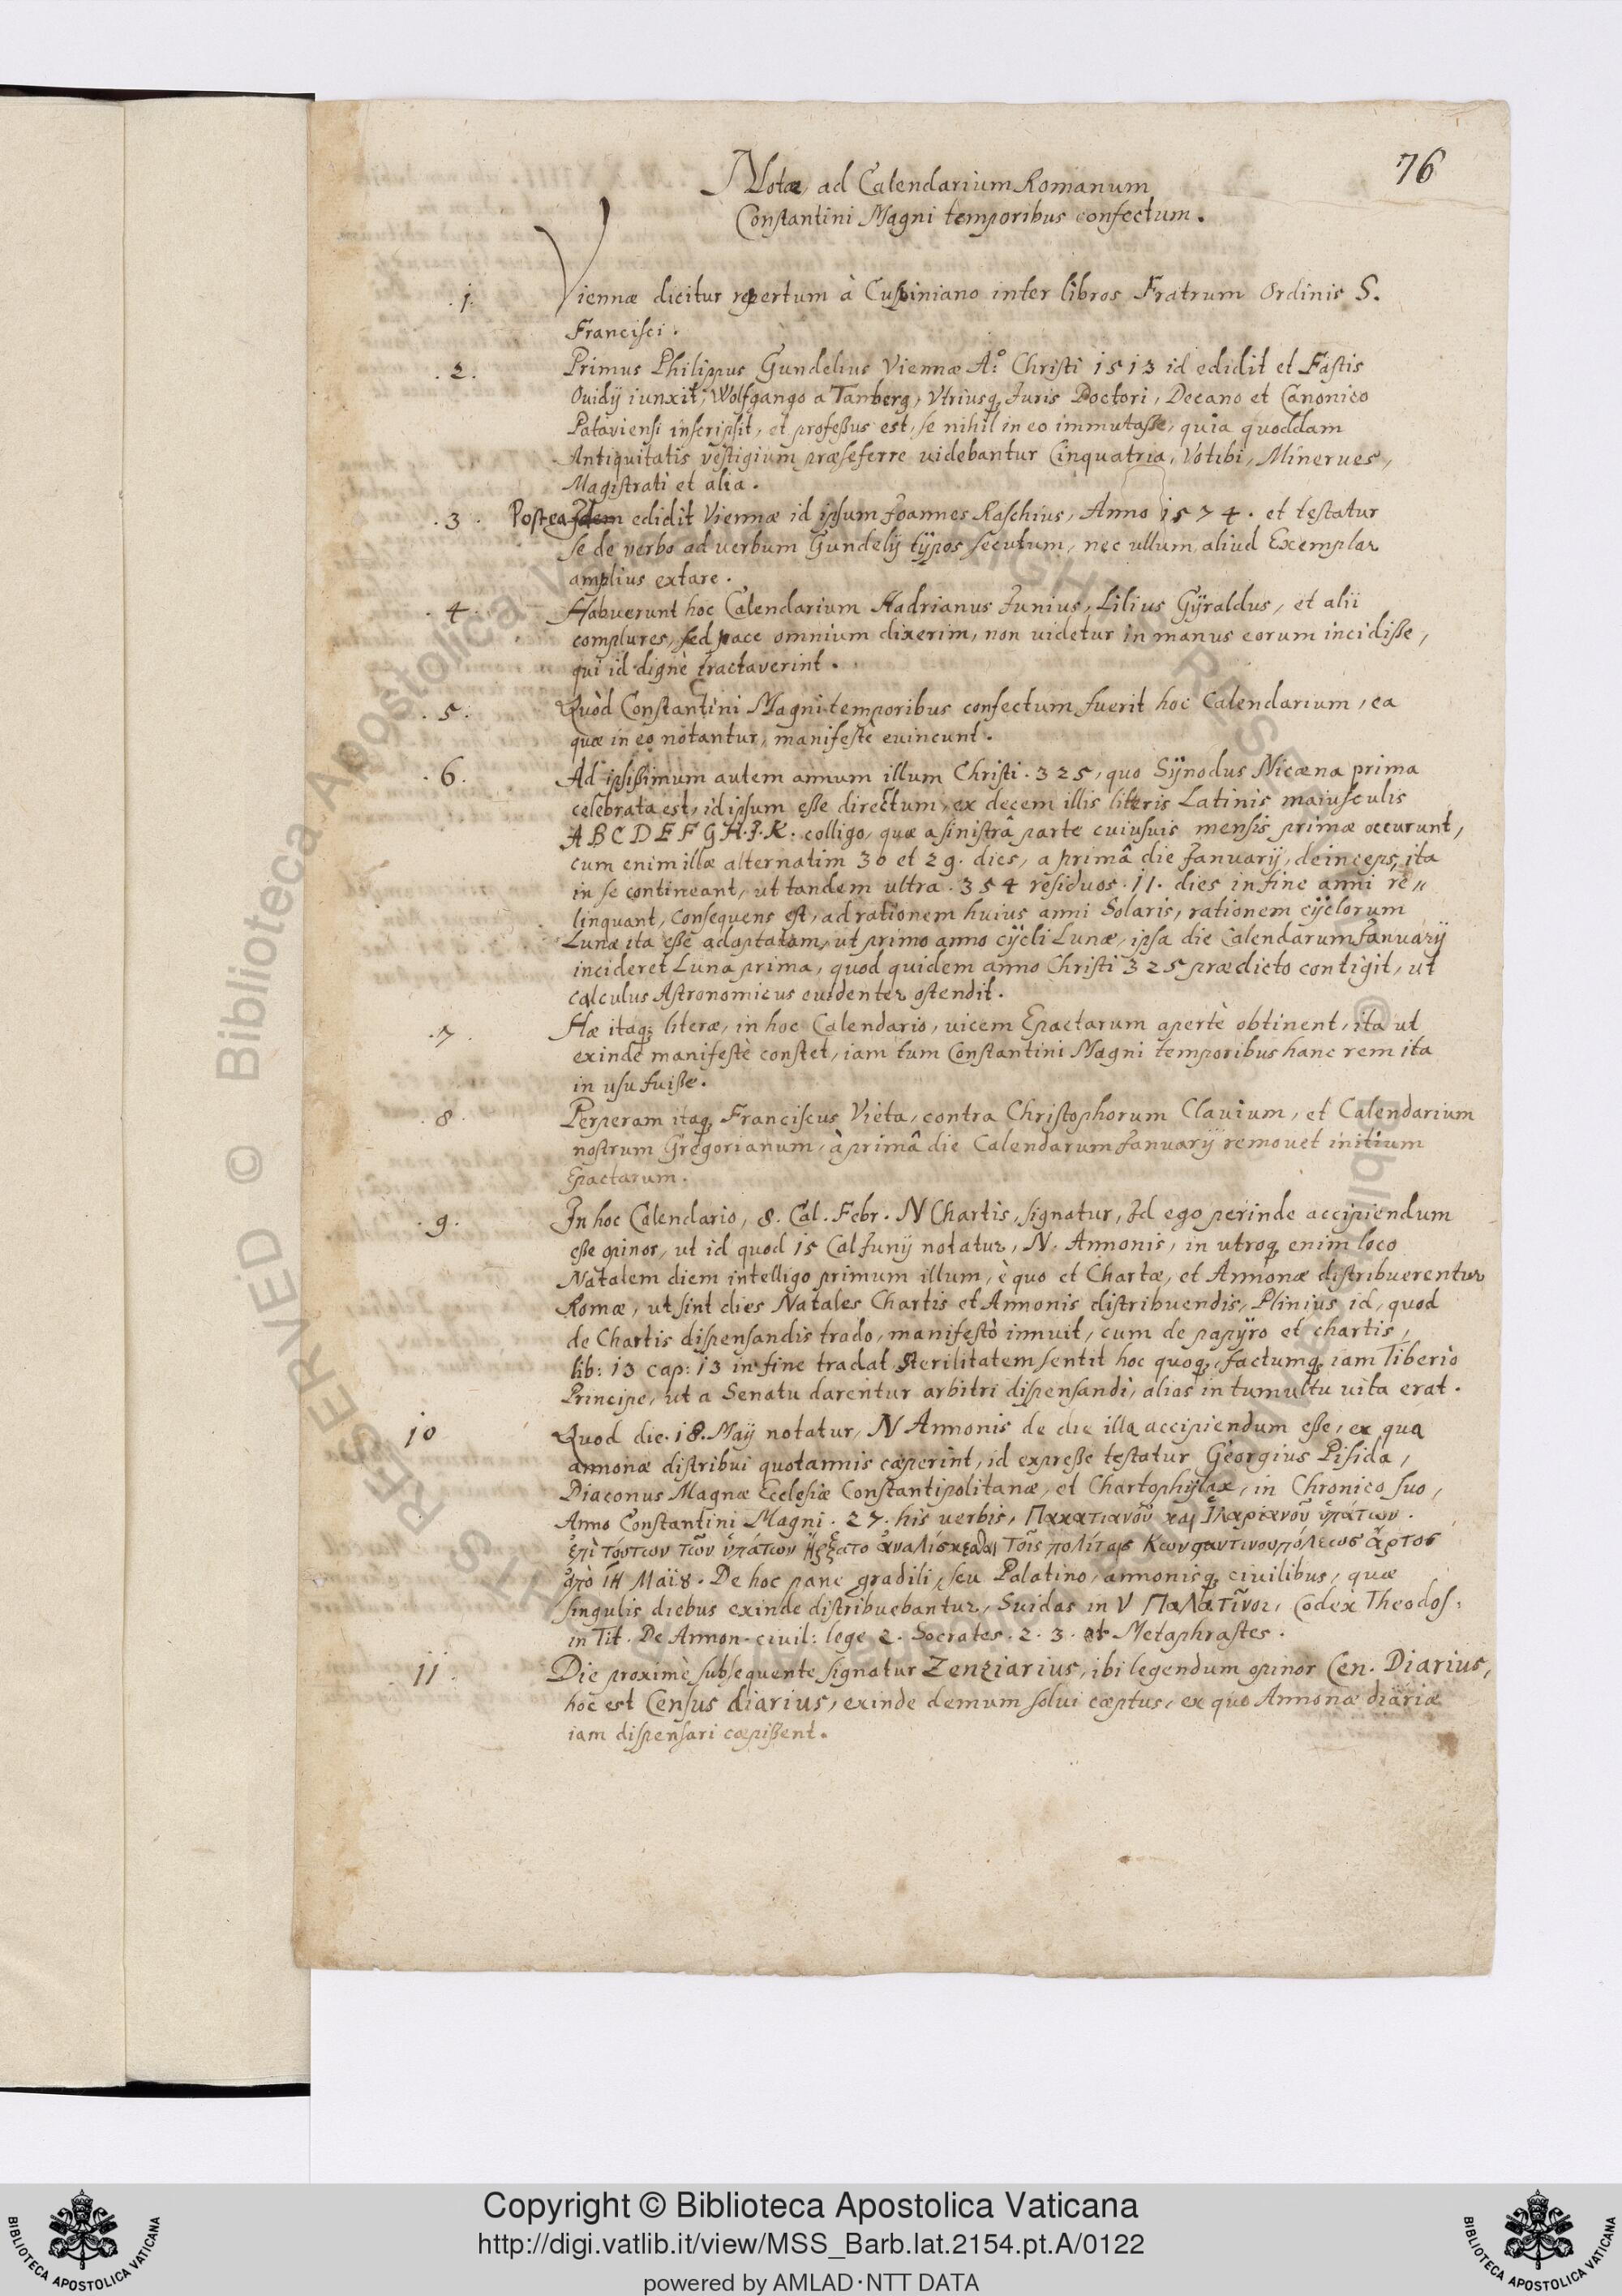 76
Notæ, ad Calendarium Romanum
Constantini Magni temporibus confectum.
.1. Viennæ dicitur repertum à Cuspiniano inter libros Fratrum Ordinis S.
Francisci.
.2. Primus Philippus Gundelius Viennæ A.º Christi 1513 id edidit et Fastis
Ouidij iunxit, Wolfgango a Tanberg, Vtriusq. Juris Doctori, Decano et Canonico
Pataviensi inscripsit, et professus est, se nihil in eo immutasse, quia quoddam
Antiquitatis vestigium præseferre uidebantur Cinquatria, Votibi, Minerues,
Magistrati et alia.
.3. Postea Idem edidit Viennæ id ipsum Joannes Raschius, Anno 1574. et testatur
se de verbo ad uerbum Gundelij typos secutum, nec ullum aliud Exemplar
amplius extare.
.4. Habuerunt hoc Calendarium Hadrianus Junius, Lilius Gyraldus, et alii
complures, sed pace omnium dixerim, non uidetur in manus eorum incidisse,
qui id dignè tractaverint.
.5. Quòd Constantini Magni temporibus confectum fuerit hoc Calendarium, ea
quæ in eo notantur, manifestè euincunt.
.6. Ad ipsissimum autem annum illum Christi .325, quo Synodus Nicæna prima
celebrata est, id ipsum esse directum, ex decem illis literis Latinis maiusculis
A B C D E F G H.J.K. colligo, quæ a sinistrâ parte cuiusuis mensis primæ occurunt,
cum enim illæ alternatim 30 et 29. dies, a primâ die Januarij, deinceps, ita
in se contineant, ut tandem ultra .354 residuos .11. dies in fine anni re〃
linquant, Consequens est, ad rationem huius anni Solaris, rationem cyclorum
Lunæ ita esse adaptatam, ut primo anno cycli Lunæ, ipsa die Calendarum Januarij
incideret Luna prima, quod quidem anno Christi 325 prædicto contigit, ut
calculus Astronomicus euidenter ostendit.
.7. Hæ itaq; literæ, in hoc Calendario, uicem Epactarum apertè obtinent, ita ut
exinde manifestè constet, iam tum Constantini Magni temporibus hanc rem ita
in usu fuisse.
.8. Perperam itaq. Franciscus Vieta, contra Christophorum Clauium, et Calendarium
nostrum Gregorianum, à primâ die Calendarum Januarij remouet initium
Epactarum.
.9. In hoc Calendario, 8. Cal. Febr. N Chartis, signatur, Id ego perinde accipiendum
esse opinor, ut id quod 15 Cal Junij notatur, N. Annonis, in utroq. enim loco
Natalem diem intelligo primum illum, è quo et Chartæ, et Annonæ distribuerentur
Romæ, ut sint dies Natales Chartis et Annonis distribuendis, Plinius id, quod
de Chartis dispensandis trado, manifestò innuit, cum de papyro et chartis,
lib: 13 cap: 13 in fine tradat Sterilitatem sentit hoc quoq., factumq. iam Tiberio
Principe, ut a Senatu darentur arbitri dispensandi, alios in tumultu uita erat.
10 Quod die .18. Maij notatur, N Annonis de die illa accipiendum esse, ex qua
annonæ distribui quotannis cæperint, id expresse testatur Georgius Pisida,
Diaconus Magnæ Ecclesiæ Constantipolitanæ, et Chartophylax, in Chronico suo,
Anno Constantini Magni .27. his uerbis, Πακατιανοῦ καὶ Ἱλαριανοῦ ὑπάτων.
ἐπὶ τούτων τῶν ὑπάτων ἤρξατο ἀναλίσκεσθαι τοῖς πολίταις Κωνσταντινουπόλεως ἄρτος
ἀπὸ ιη Μαΐȣ. De hoc pane gradili, seu Palatino, annonisq. ciuilibus, quæ
singulis diebus exinde distribuebantur, Suidas in V Παλατῖνοι, Codex Theodos:
in Tit. De Annon. ciuil: lege 2. Socrates .2.3. et Metaphrastes.
11. Die proximè subsequente signatur Zenziarius, ibi legendum opinor Cen. Diarius,
hoc est Census diarius, exinde demum solui cæptus, ex quo Annonæ diariæ
iam dispensari cæpissent.
Copyright © Biblioteca Apostolica Vaticana
http://digi.vatlib.it/view/MSS_Barb.lat.2154.pt.A/0122
powered by AMLAD·NTT DATA
BIBLIOTECA APOSTOLICA VATICANA
BIBLIOTECA APOSTOLICA VATICANA